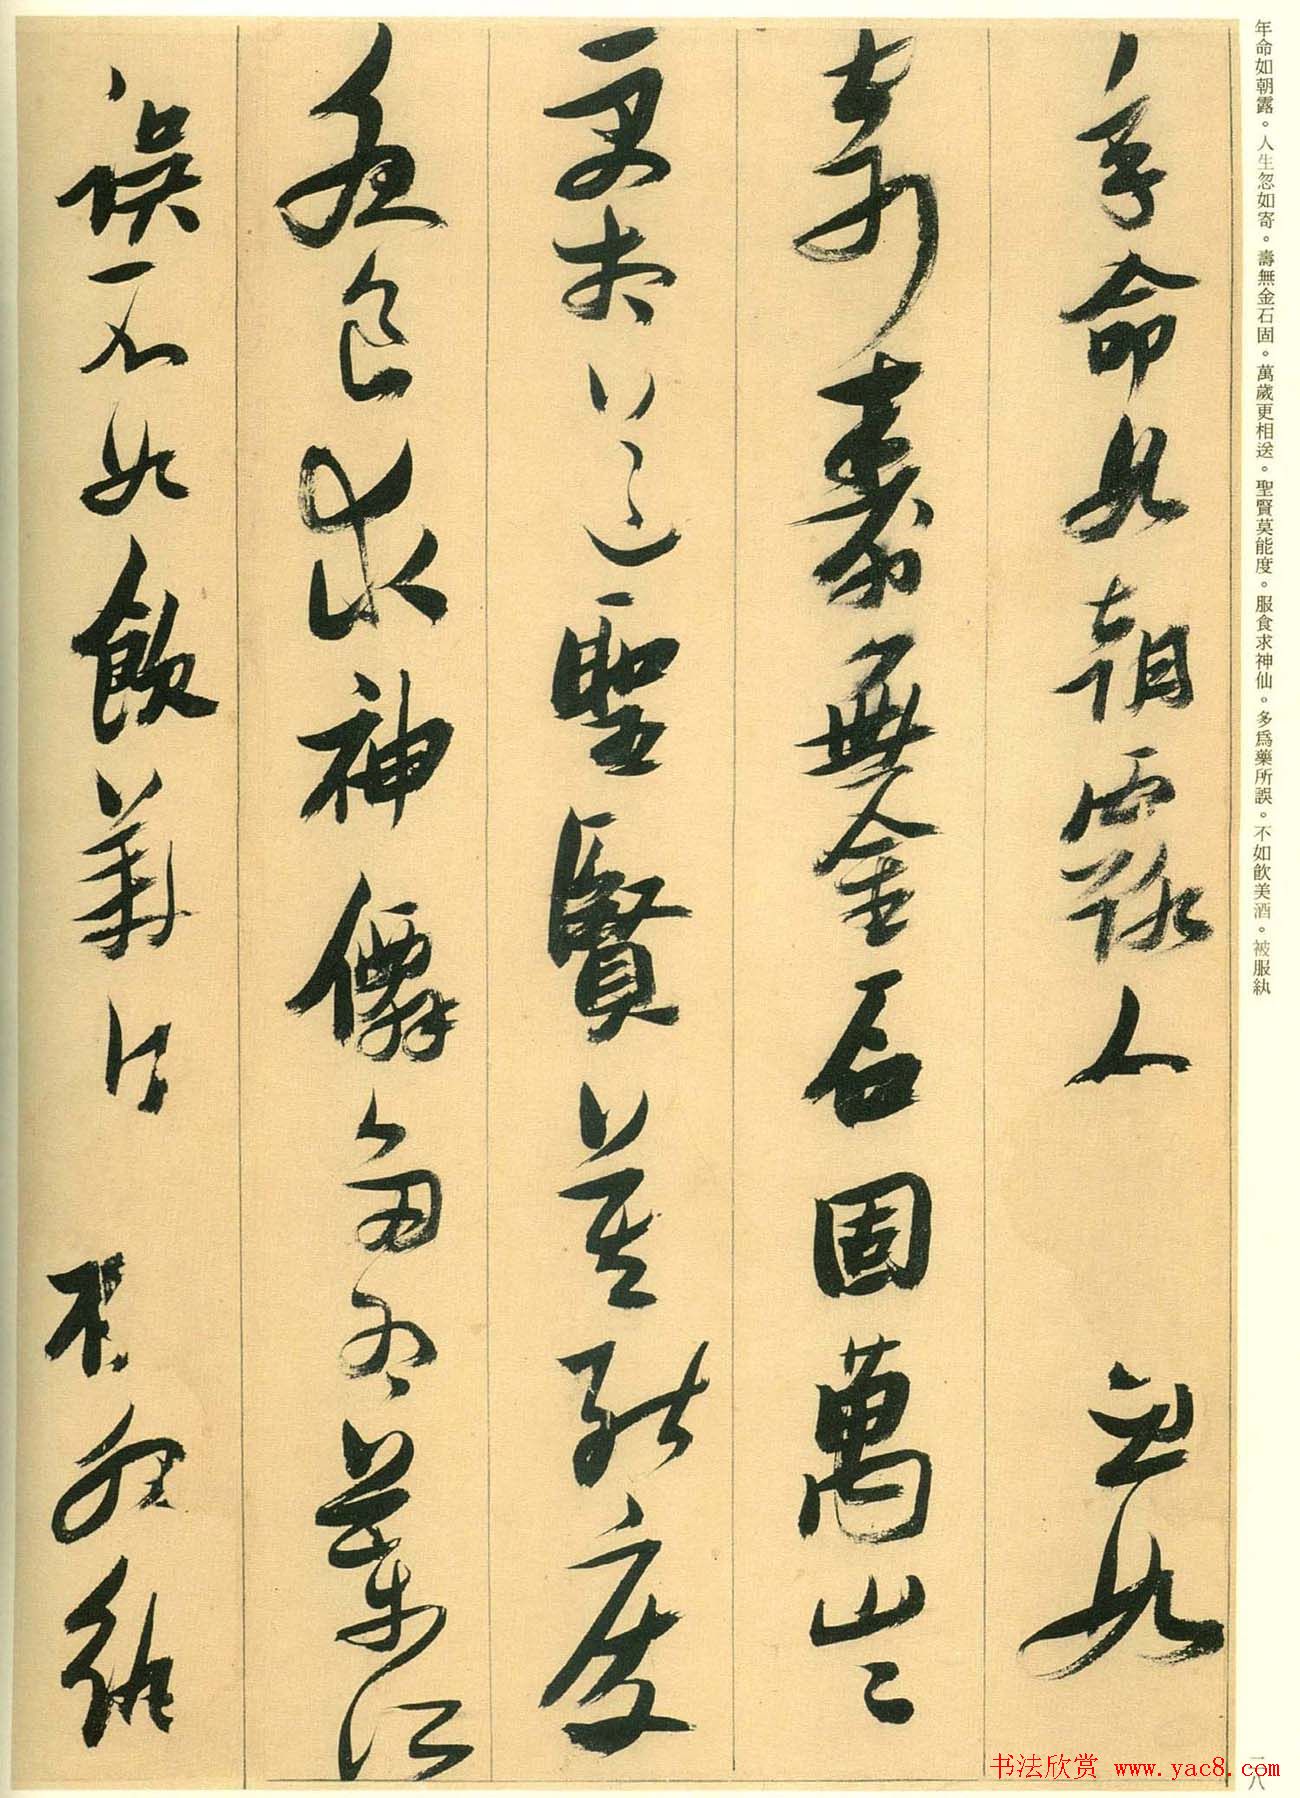 年命如朝露。人生忽如寄。壽無金石固。萬歲更相送。聖賢莫能度。服食求神仙。多爲藥所誤。不如飲美酒。被服紈
年命如朝露人忽如
寄壽無金石固萬歲
更相送聖賢莫能度
服食求神僊多為藥所
誤不如飲美酒服紈
二八
书法欣赏 www.yac8.com